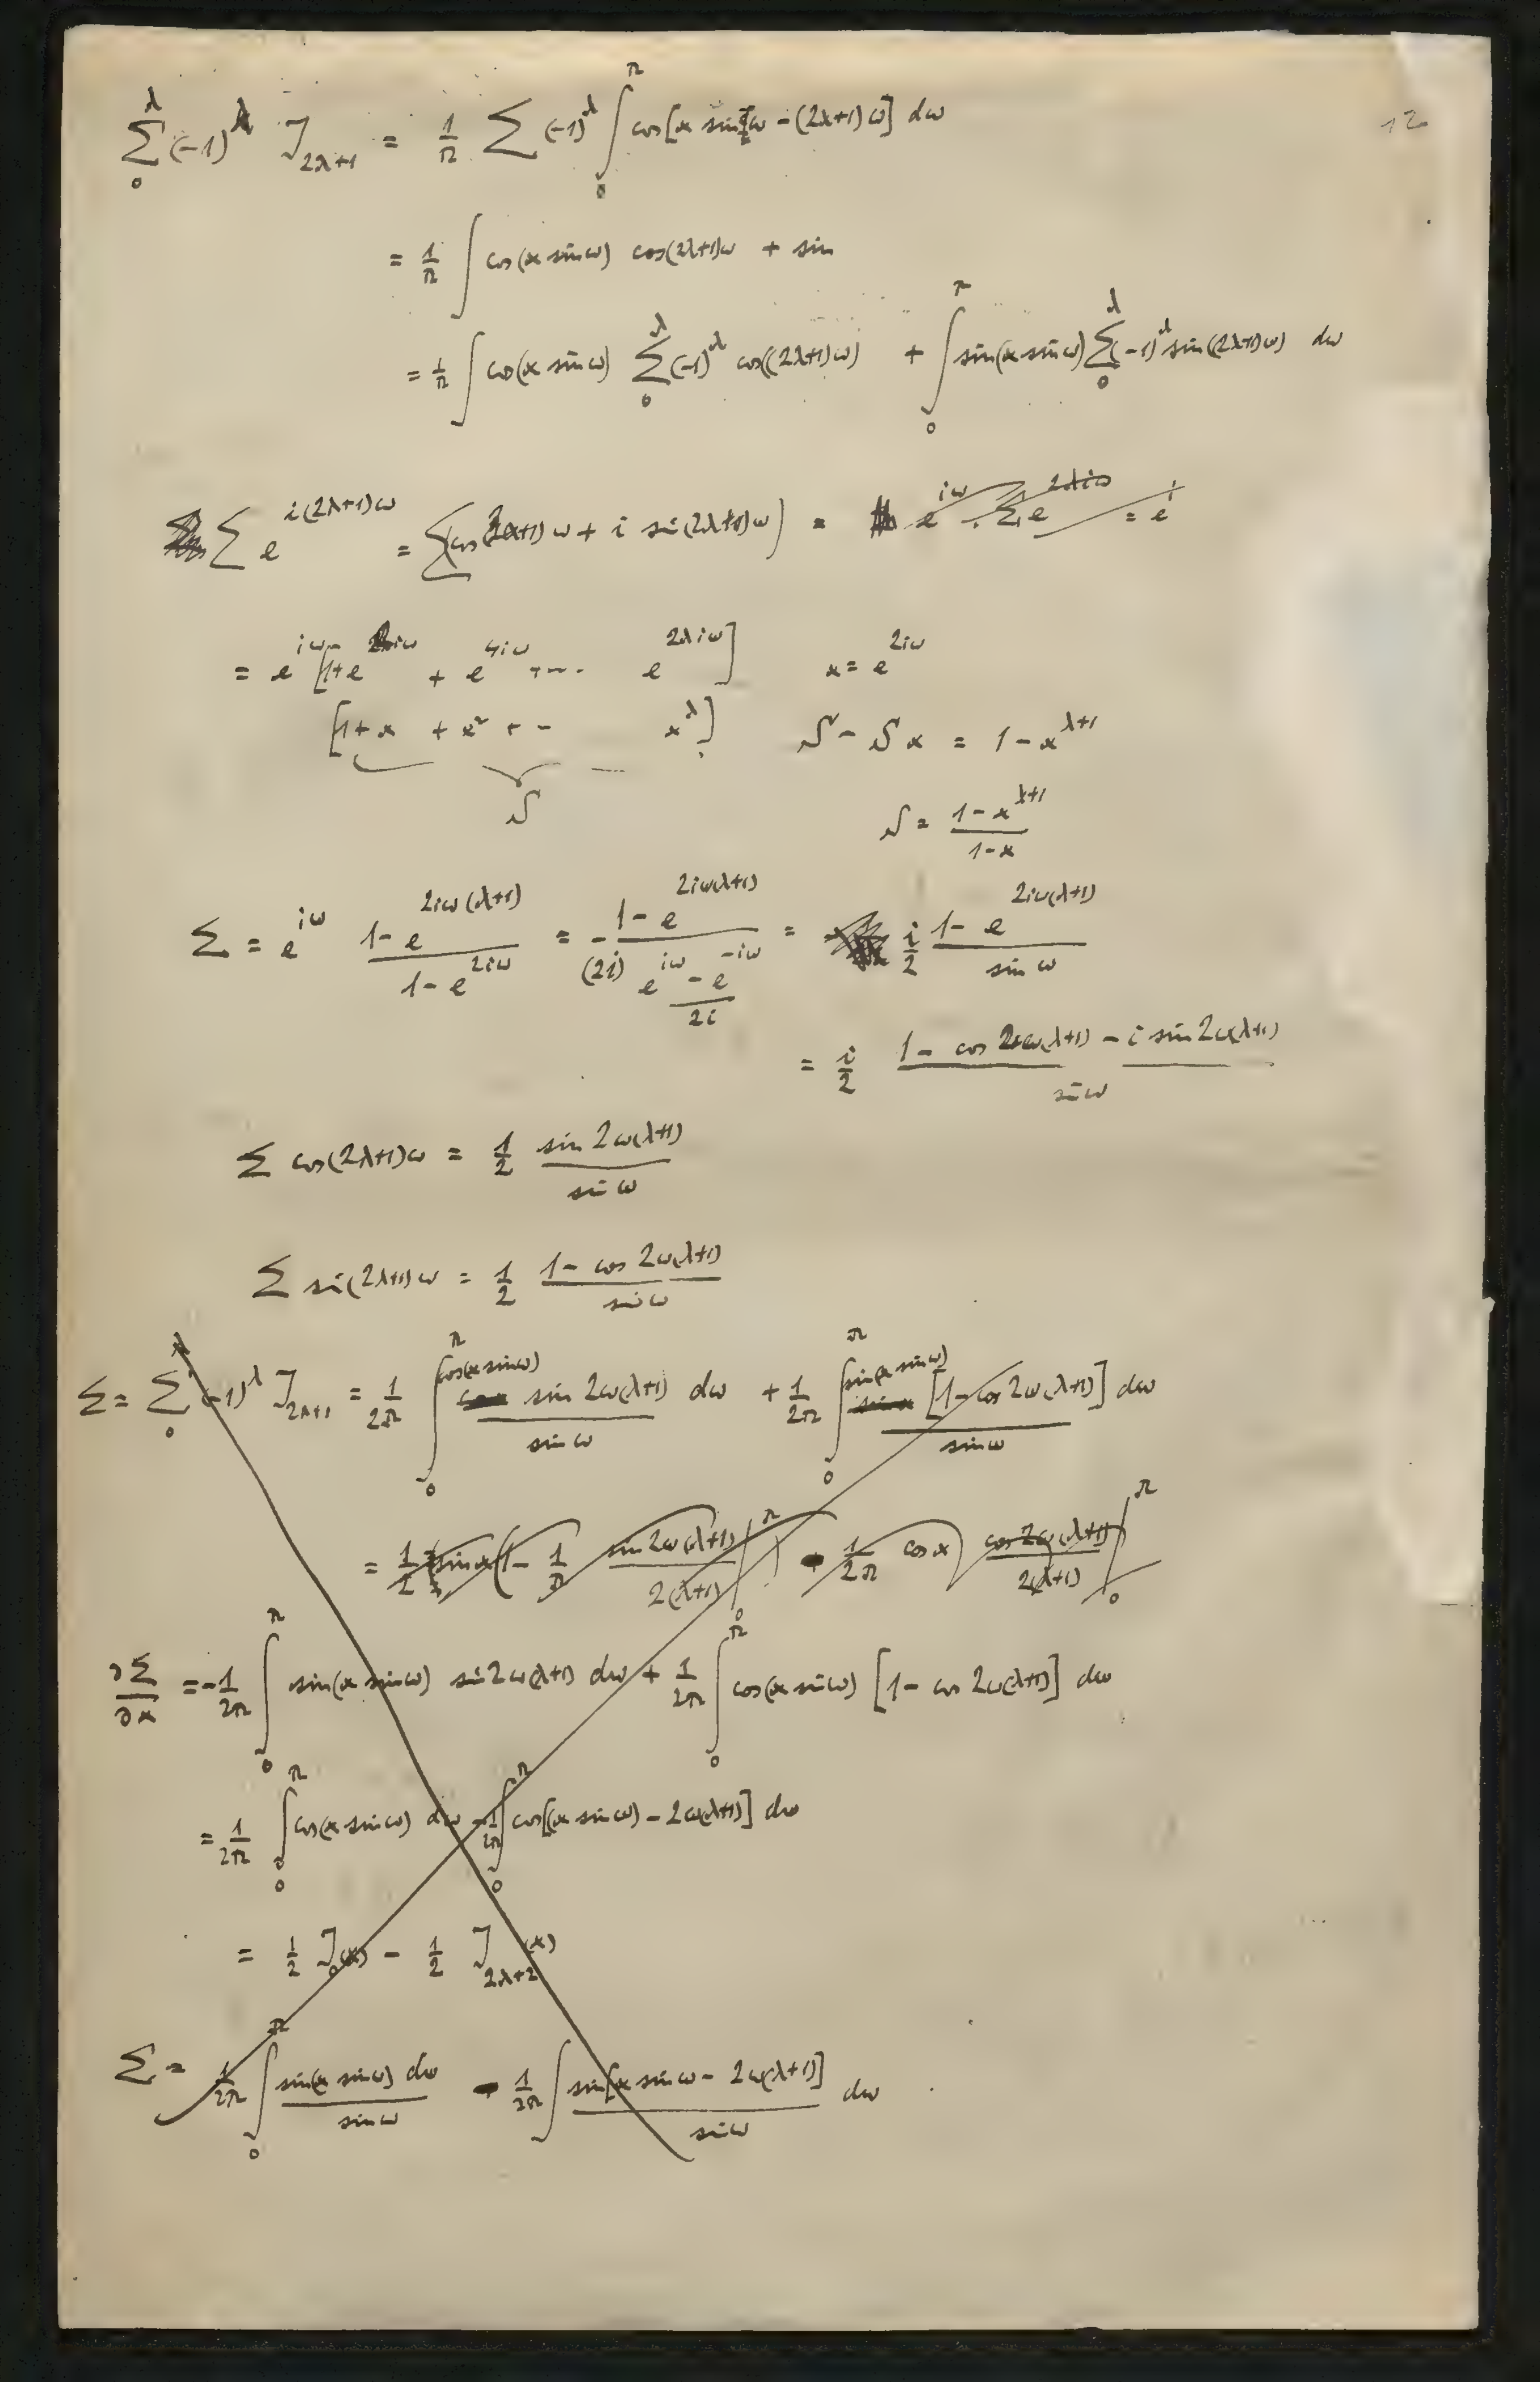 12
\sum_0^λ (-1)^λ J_{2λ+1} = \frac{1}{π} \sum (-1)^λ \int_0^π cos[x sin ω - (2λ+1)ω] dω
= \frac{1}{π} \int cos(x sin ω) cos(2λ+1)ω + sin
= \frac{1}{π} \int cos(x sin ω) \sum_0^λ (-1)^λ cos((2λ+1)ω) + \int_0^π sin(x sin ω) \sum_0^λ (-1)^λ sin(2λ+1)ω) dω
\sum e^{i(2λ+1)ω} = \sum(cos(2λ+1)ω + i sin(2λ+1)ω) = e^{iω} . \sum e^{2λiω} = e^i
= e^{iω} [1+e^{2iω} + e^{4iω} + --- e^{2λiω}] x = e^{2iω}
[1+x + x^2 + -- x^λ] S - S x = 1 - x^{λ+1}
S S = \frac{1-x^{λ+1}}{1-x}
Σ = e^{iω} \frac{1-e^{2iω(λ+1)}}{1-e^{2iω}} = -\frac{1-e^{2iω(λ+1)}}{(2i) \frac{e^{iω}-e^{-iω}}{2i}} = \frac{i}{2} \frac{1-e^{2iω(λ+1)}}{sin ω}
= \frac{i}{2} \frac{1 - cos 2ω(λ+1) - i sin 2ω(λ+1)}{sin ω}
Σ cos(2λ+1)ω = \frac{1}{2} \frac{sin 2ω(λ+1)}{sin ω}
Σ sin(2λ+1)ω = \frac{1}{2} \frac{1 - cos 2ω(λ+1)}{sin ω}
Σ = \sum_0^λ (-1)^λ J_{2λ+1} = \frac{1}{2π} \int_0^π \frac{cos(x sin ω) sin 2ω(λ+1)}{sin ω} dω + \frac{1}{2π} \int_0^π \frac{sin(x sin ω) [1 - cos 2ω(λ+1)]}{sin ω} dω
= \frac{1}{2} sin x (1 - \frac{1}{π} \frac{sin 2ω(λ+1)}{2(λ+1)} |_0^π ) \frac{1}{2π} cos x) \frac{cos 2ω(λ+1)}{2(λ+1)} |_0^π
\frac{∂Σ}{∂x} = -\frac{1}{2π} \int_0^π sin(x sin ω) sin 2ω(λ+1) dω + \frac{1}{2π} \int_0^π cos(x sin ω) [1 - cos 2ω(λ+1)] dω
= \frac{1}{2π} \int_0^π cos(x sin ω) dω - \frac{1}{2π} \int_0^π cos[(x sin ω) - 2ω(λ+1)] dω
= \frac{1}{2} J_0(x) - \frac{1}{2} J_{2λ+2}(x)
Σ = \frac{1}{2π} \int_0^π \frac{sin(x sin ω) dω}{sin ω} - \frac{1}{2π} \int \frac{sin[x sin ω - 2ω(λ+1)]}{sin ω} dω